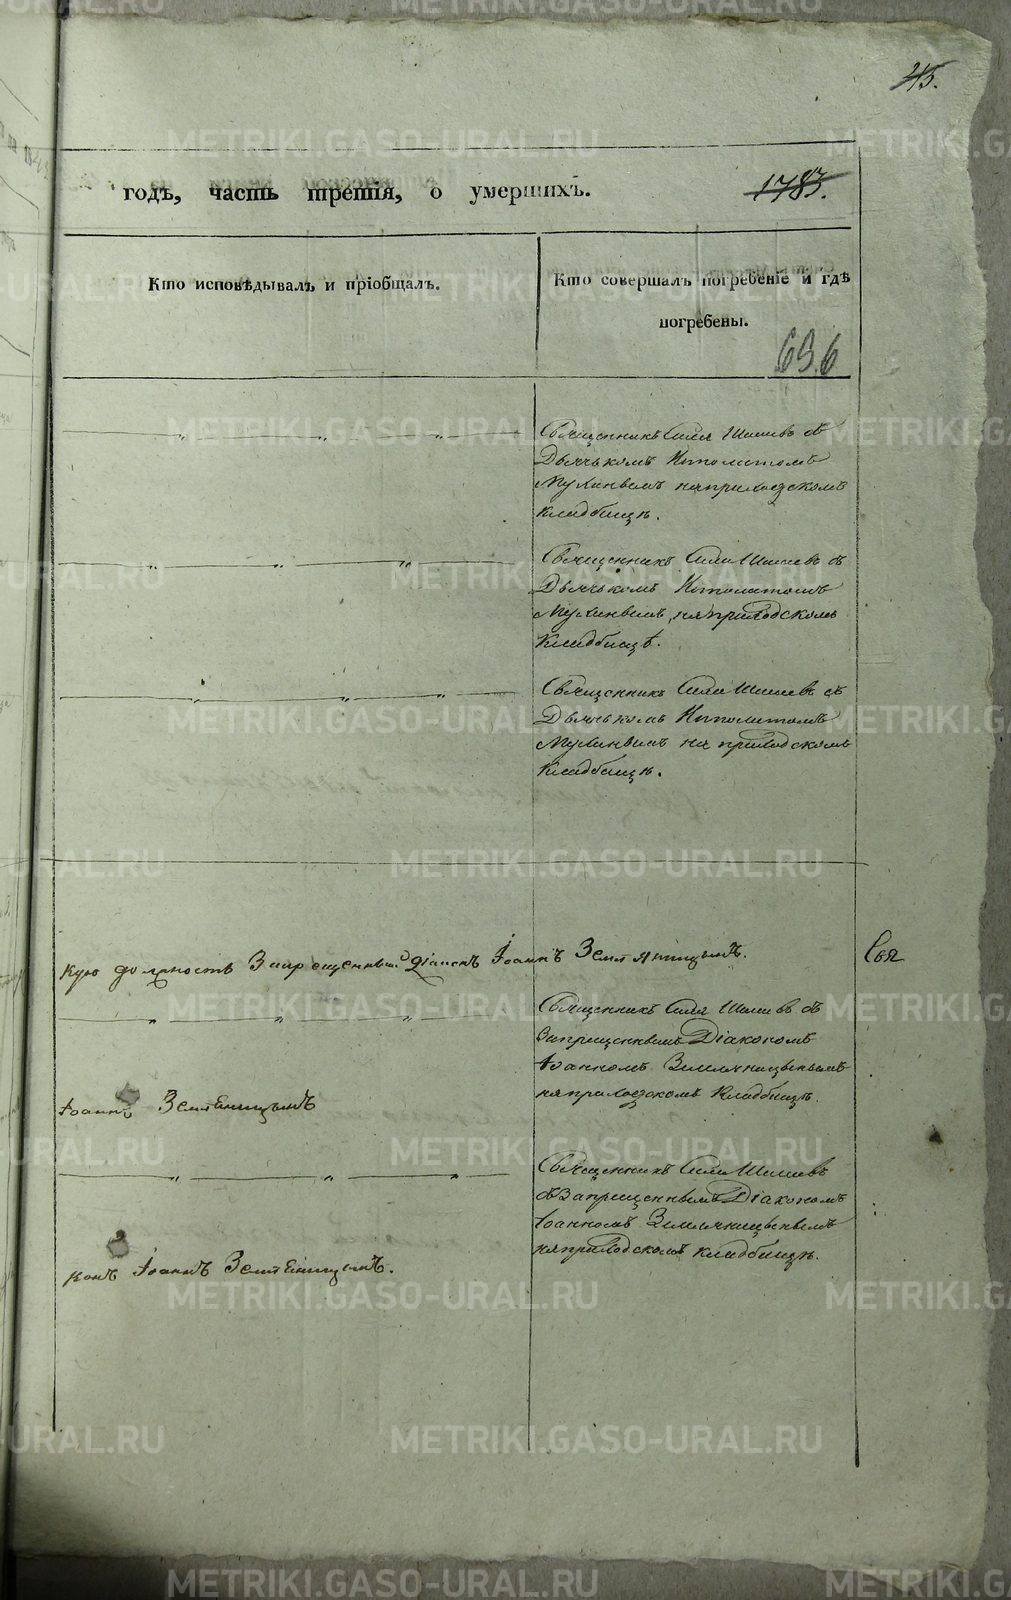 45.
годъ, часть третія, о умершихъ.
1783.
Кто исповѣдывалъ и пріобщалъ.
Кто совершалъ погребеніе и гдѣ
погребены.
636
Священникъ Сила Шишевъ съ
Дьячькомъ Иполитомъ
на приходскомъ
кладбищѣ.
Священникъ Сила Шишевъ съ
Дьячькомъ Иполитомъ
на приходскомъ
кладбищѣ.
Священникъ Сила Шишевъ съ
Дьячькомъ Иполитомъ
на приходскомъ
кладбищѣ.
кую должность Запрещенный Діаконъ Іоаннъ
Свя
Священникъ Сила Шишевъ съ
Запрещеннымъ Діакономъ
Іоанномъ Земляницынымъ
на приходскомъ кладбищѣ.
Іоаннъ Земляницынъ
Священникъ Сила Шишевъ
съ Запрещеннымъ Діакономъ
Іоанномъ Земляницынымъ
на приходскомъ кладбищѣ.
конъ Іоаннъ Земляницынъ.
METRIKI.GASO-URAL.RU